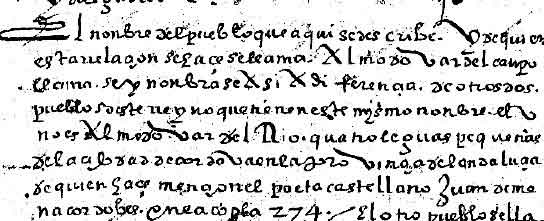 El nonbre del pueblo que aqui se des cribe. Y de quien
esta relaçon se haçe se llama. Almodovar del canpo
llama se y nonbrase Asi A di ferençia. de otros dos.
pueblos oeste rey no que tienen este mismo nonbre. el v
no es Almodovar del Rio. quatro leguas pequeñas
de la çibdad de cordova en la provinçia del andaluçia
de quien haçe mençion el poeta castellano Juan de me
na cordobes. en la copla 274. el otro pueblo se lla